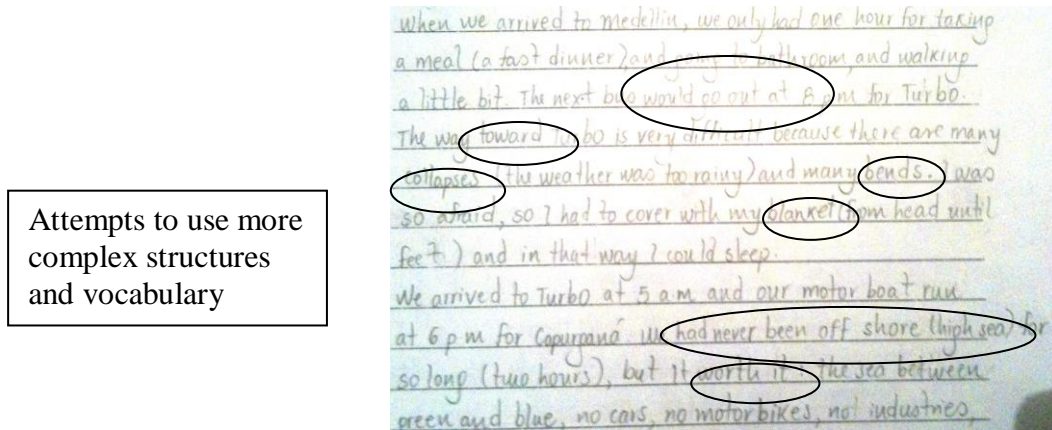 Attempts to use more
complex structures
and vocabulary
when we arrived to medellin, we only had one hour for taking
a meal (a fast dinner), and going to bathroom, and walking
a little bit. The next bus would go out at 8 pm for Turbo.
The way toward Turbo is very difficult because there are many
collapses (the weather was too rainy) and many bends. I was
so afraid, so I had to cover with my blanket (from head until
feet) and in that way I could sleep.
We arrived to Turbo at 5 am and our motor boat run
at 6 pm for Capurganá. We had never been off shore (high sea) for
so long (two hours), but it worth it: the sea between
green and blue, no cars, no motorbikes, not industries,